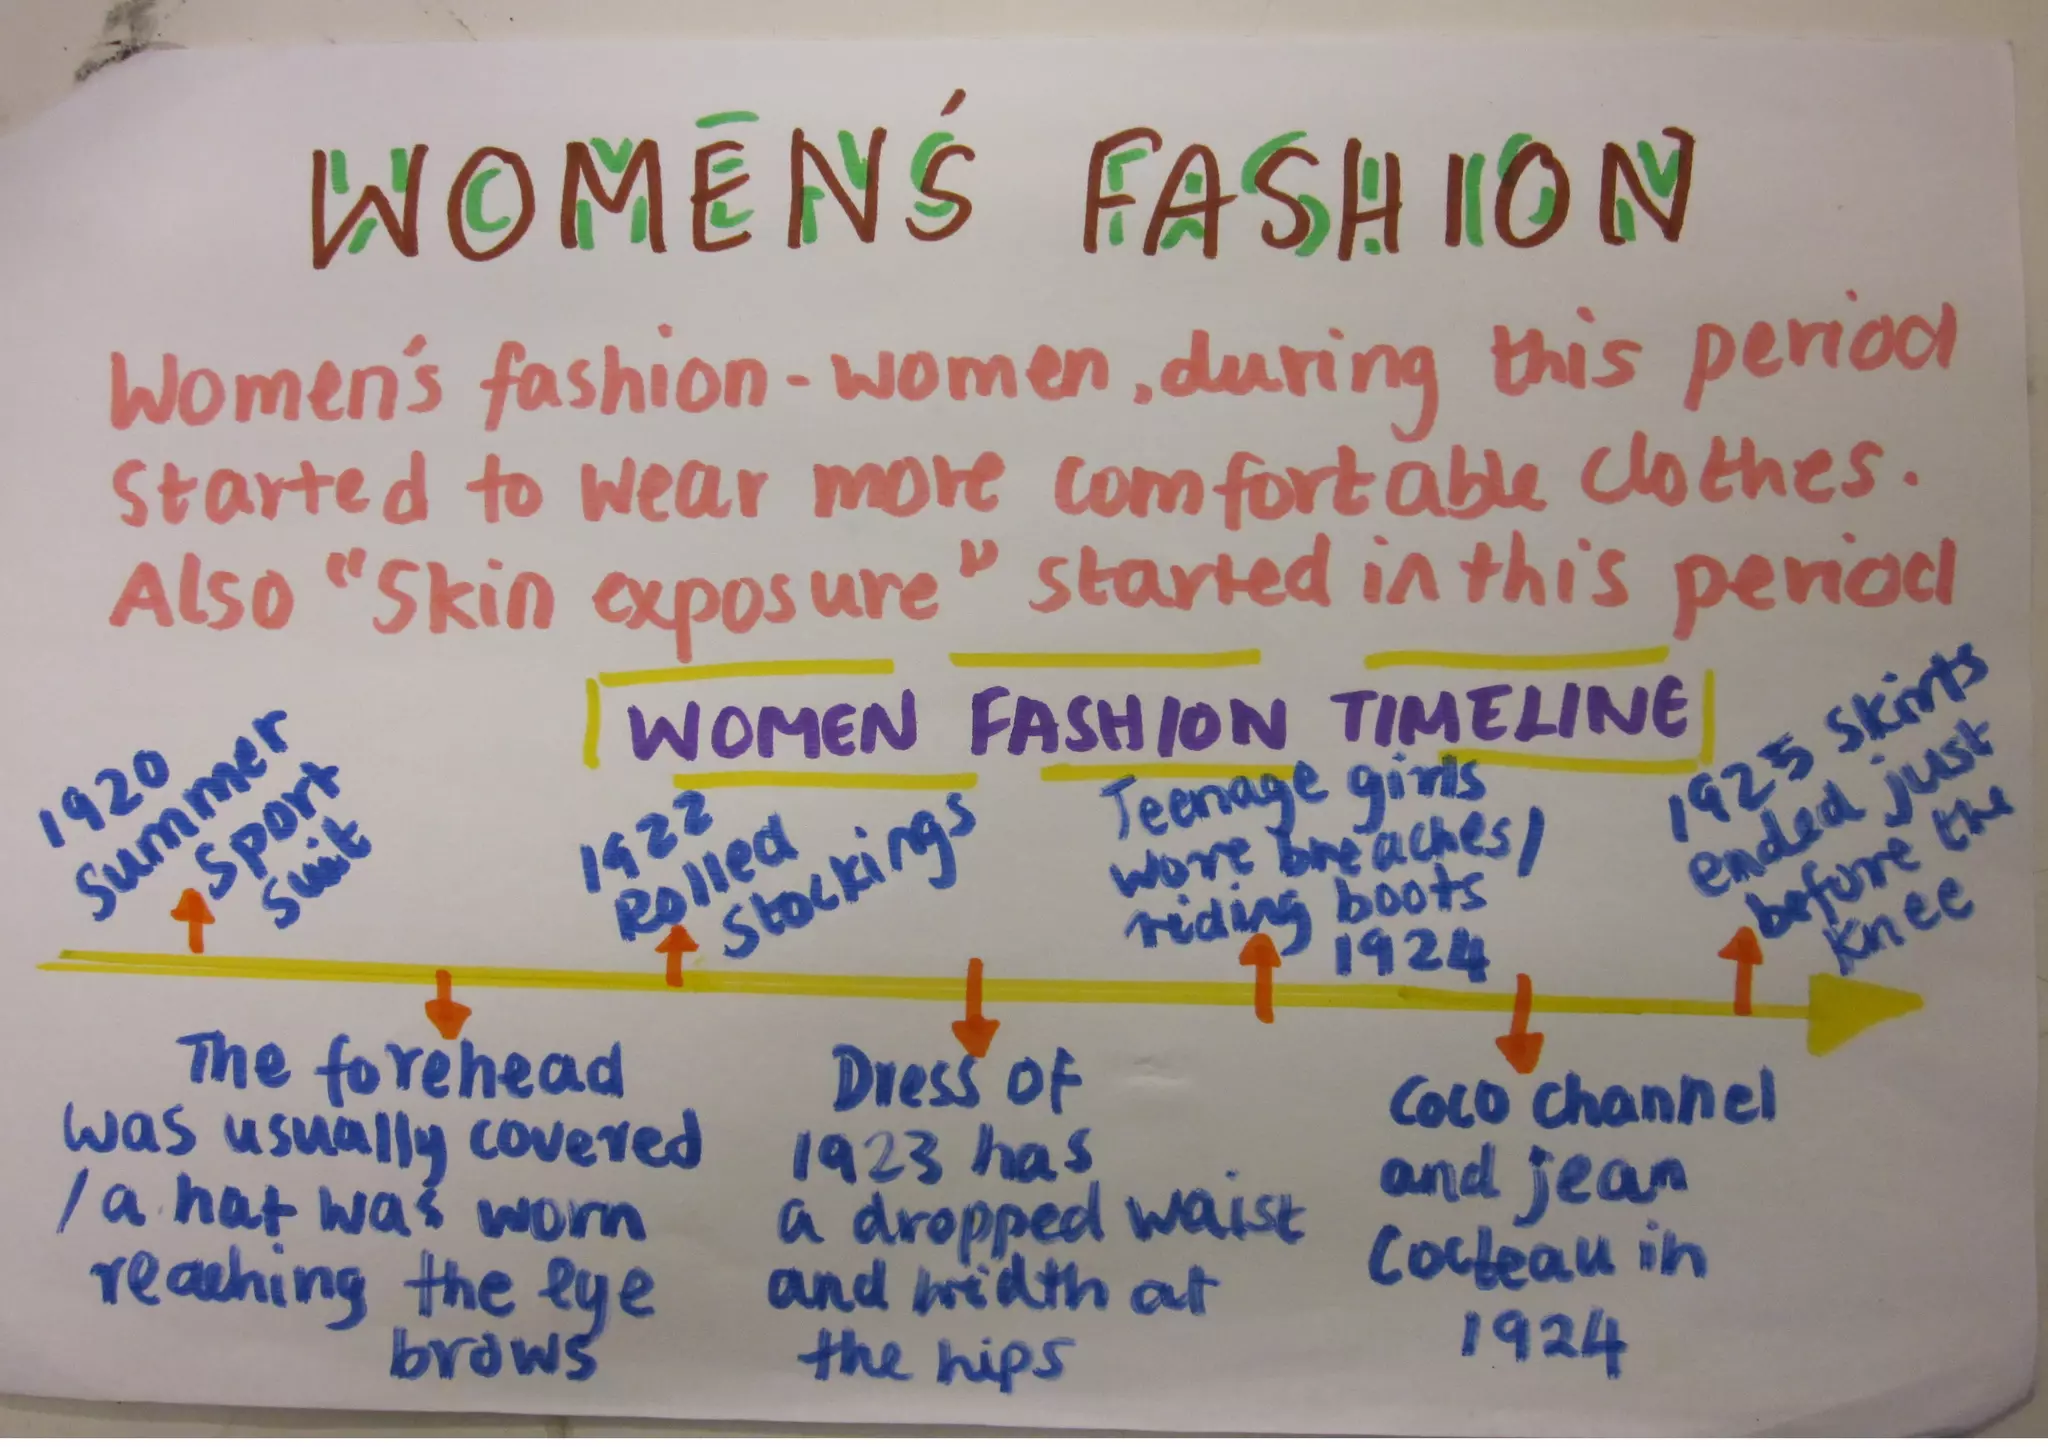 WOMEN'S FASHION
Women's fashion - women, during this period
started to wear more comfortable clothes.
Also "Skin exposure" started in this period
WOMEN FASHION TIMELINE
1920
Summer
Sport
Suit
1922
Rolled
Stockings
Teenage girls
wore breaches/
riding boots
1924
1925 skirts
ended just
before the
knee
The forehead
was usually covered
/a hat was worn
reaching the eye
brows
Dress of
1923 has
a dropped waist
and width at
the hips
Coco channel
and jean
Cocteau in
1924